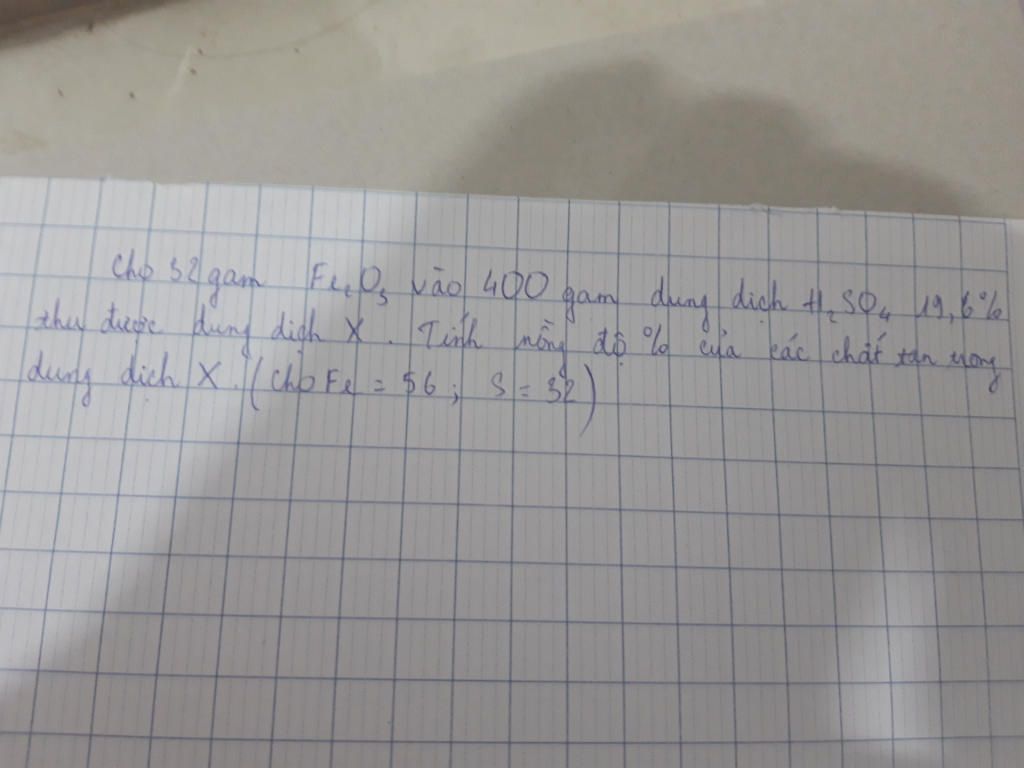 Cho 32 gam Fe₂O₃ vào 400 gam dung dịch H₂SO₄ 19,6%
thu được dung dịch X. Tính nồng độ % của các chất tan trong
dung dịch X. (Cho Fe = 56 ; S = 32)